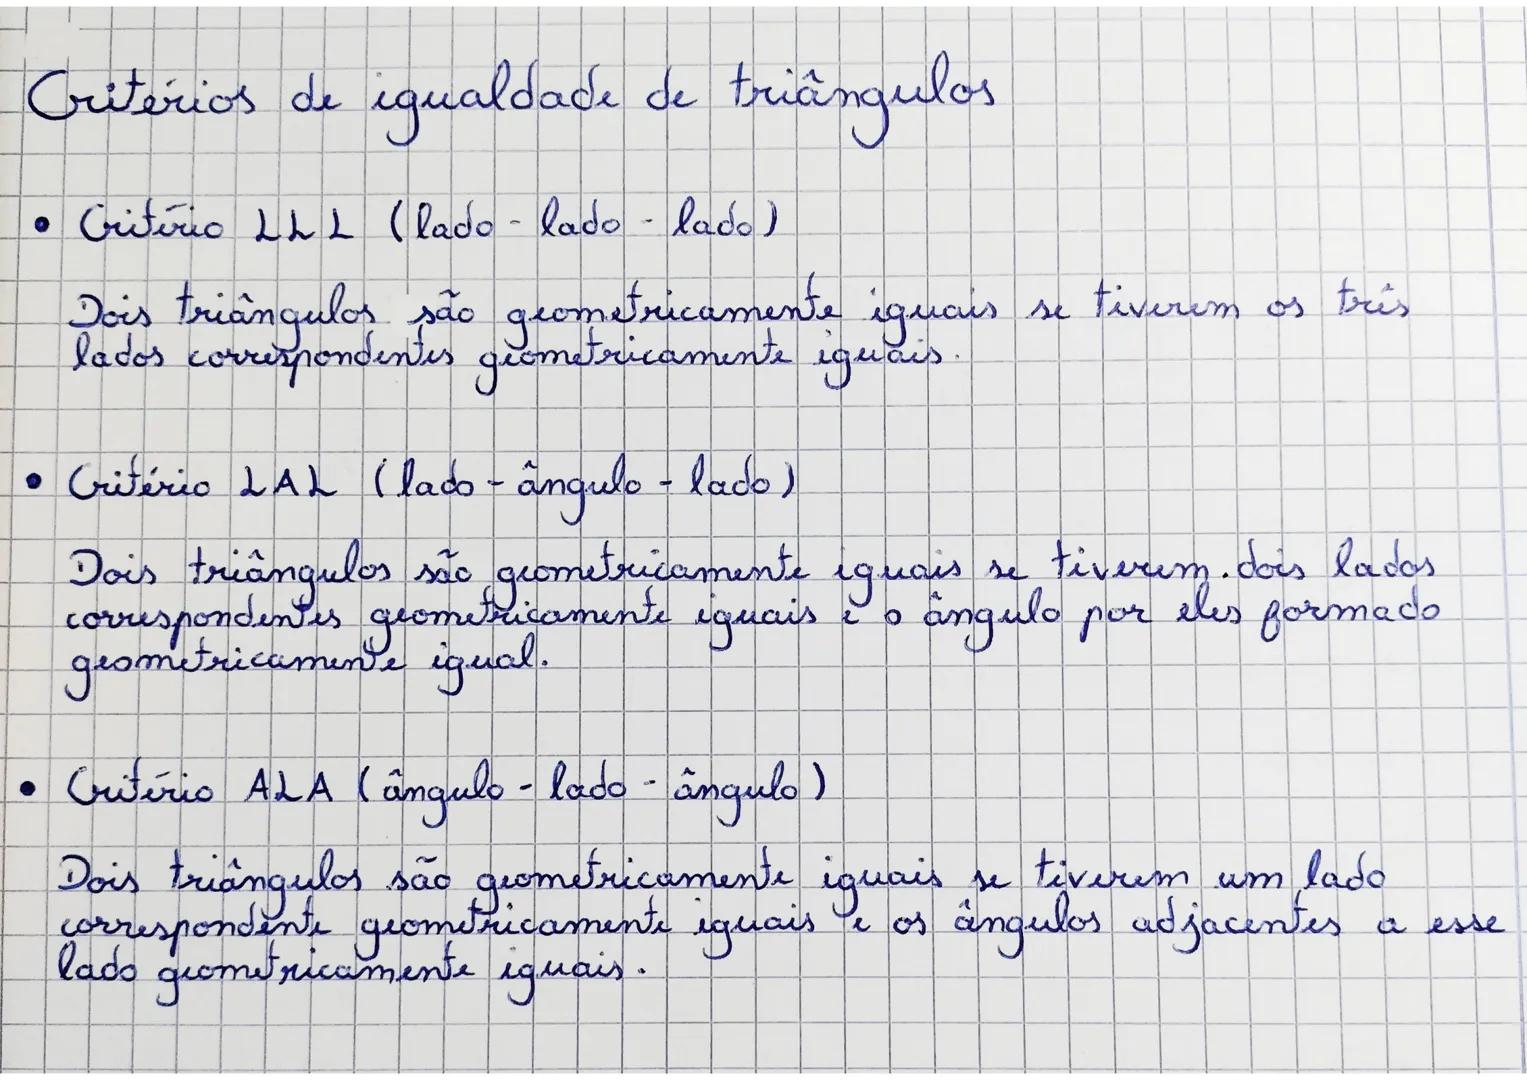 Critérios de igualdade de triângulos
• Critério LLL (lado - lado - lado)
Dois triângulos são geometricamente iguais se tiverem os três
lados correspondentes geometricamente iguais.
• Critério LAL (lado - ângulo - lado)
Dois triângulos são geometricamente iguais se tiverem dois lados
correspondentes geometricamente iguais e o ângulo por eles formado
geometricamente igual.
• Critério ALA (ângulo - lado - ângulo)
Dois triângulos são geometricamente iguais se tiverem um lado
correspondente geometricamente iguais e os ângulos adjacentes a esse
lado geometricamente iguais.